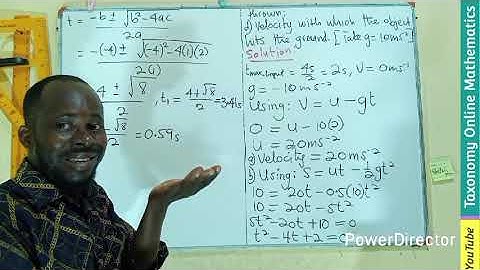 t = -b ± √b²-4ac
2a
= -(-4) ± √(-4)²-4(1)(2)
2(1)
4 ± √8
2
, t₁ = 4+√8
2
= 3.41s
-√8
2
= 0.59s
thrown;
d) Velocity with which the object
hits the ground. [Take g=10ms⁻²]
Solution:
tmax.input = 4s
2
= 2s, V=0ms⁻¹
g = -10ms⁻²
Using: V = u - gt
0 = u - 10(2)
u = 20ms⁻²
a) Velocity = 20ms⁻²
b) Using: S = ut - 1
2
gt²
10 = 20t - 0.5(10)t²
10 = 20t - 5t²
5t²-20t+10=0
t²-4t+2=0
PowerDirector
Taxonomy Online Mathematics
YouTube